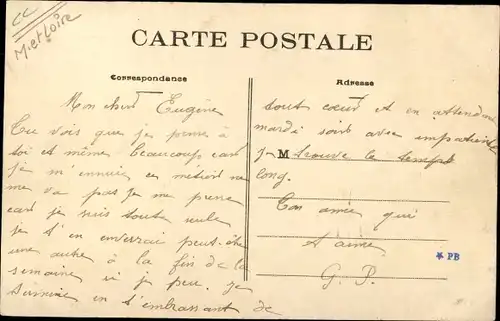 CC
M. et Loire
CARTE POSTALE
Correspondance
Adresse
Mon cher Eugène
Tu vois que je pense à
toi et même beaucoup car
je m'ennuie ce métier ne
me va pas je me
car je suis toute seule
je t'en enverrai peut-être
une autre à la fin de la
semaine si je peu. je
termine en t'embrassant de
tout cœur et en attendant
mardi soir avec impatience
je M trouve le temps
long.
Ton amie qui
t'aime
G. P.
* PB